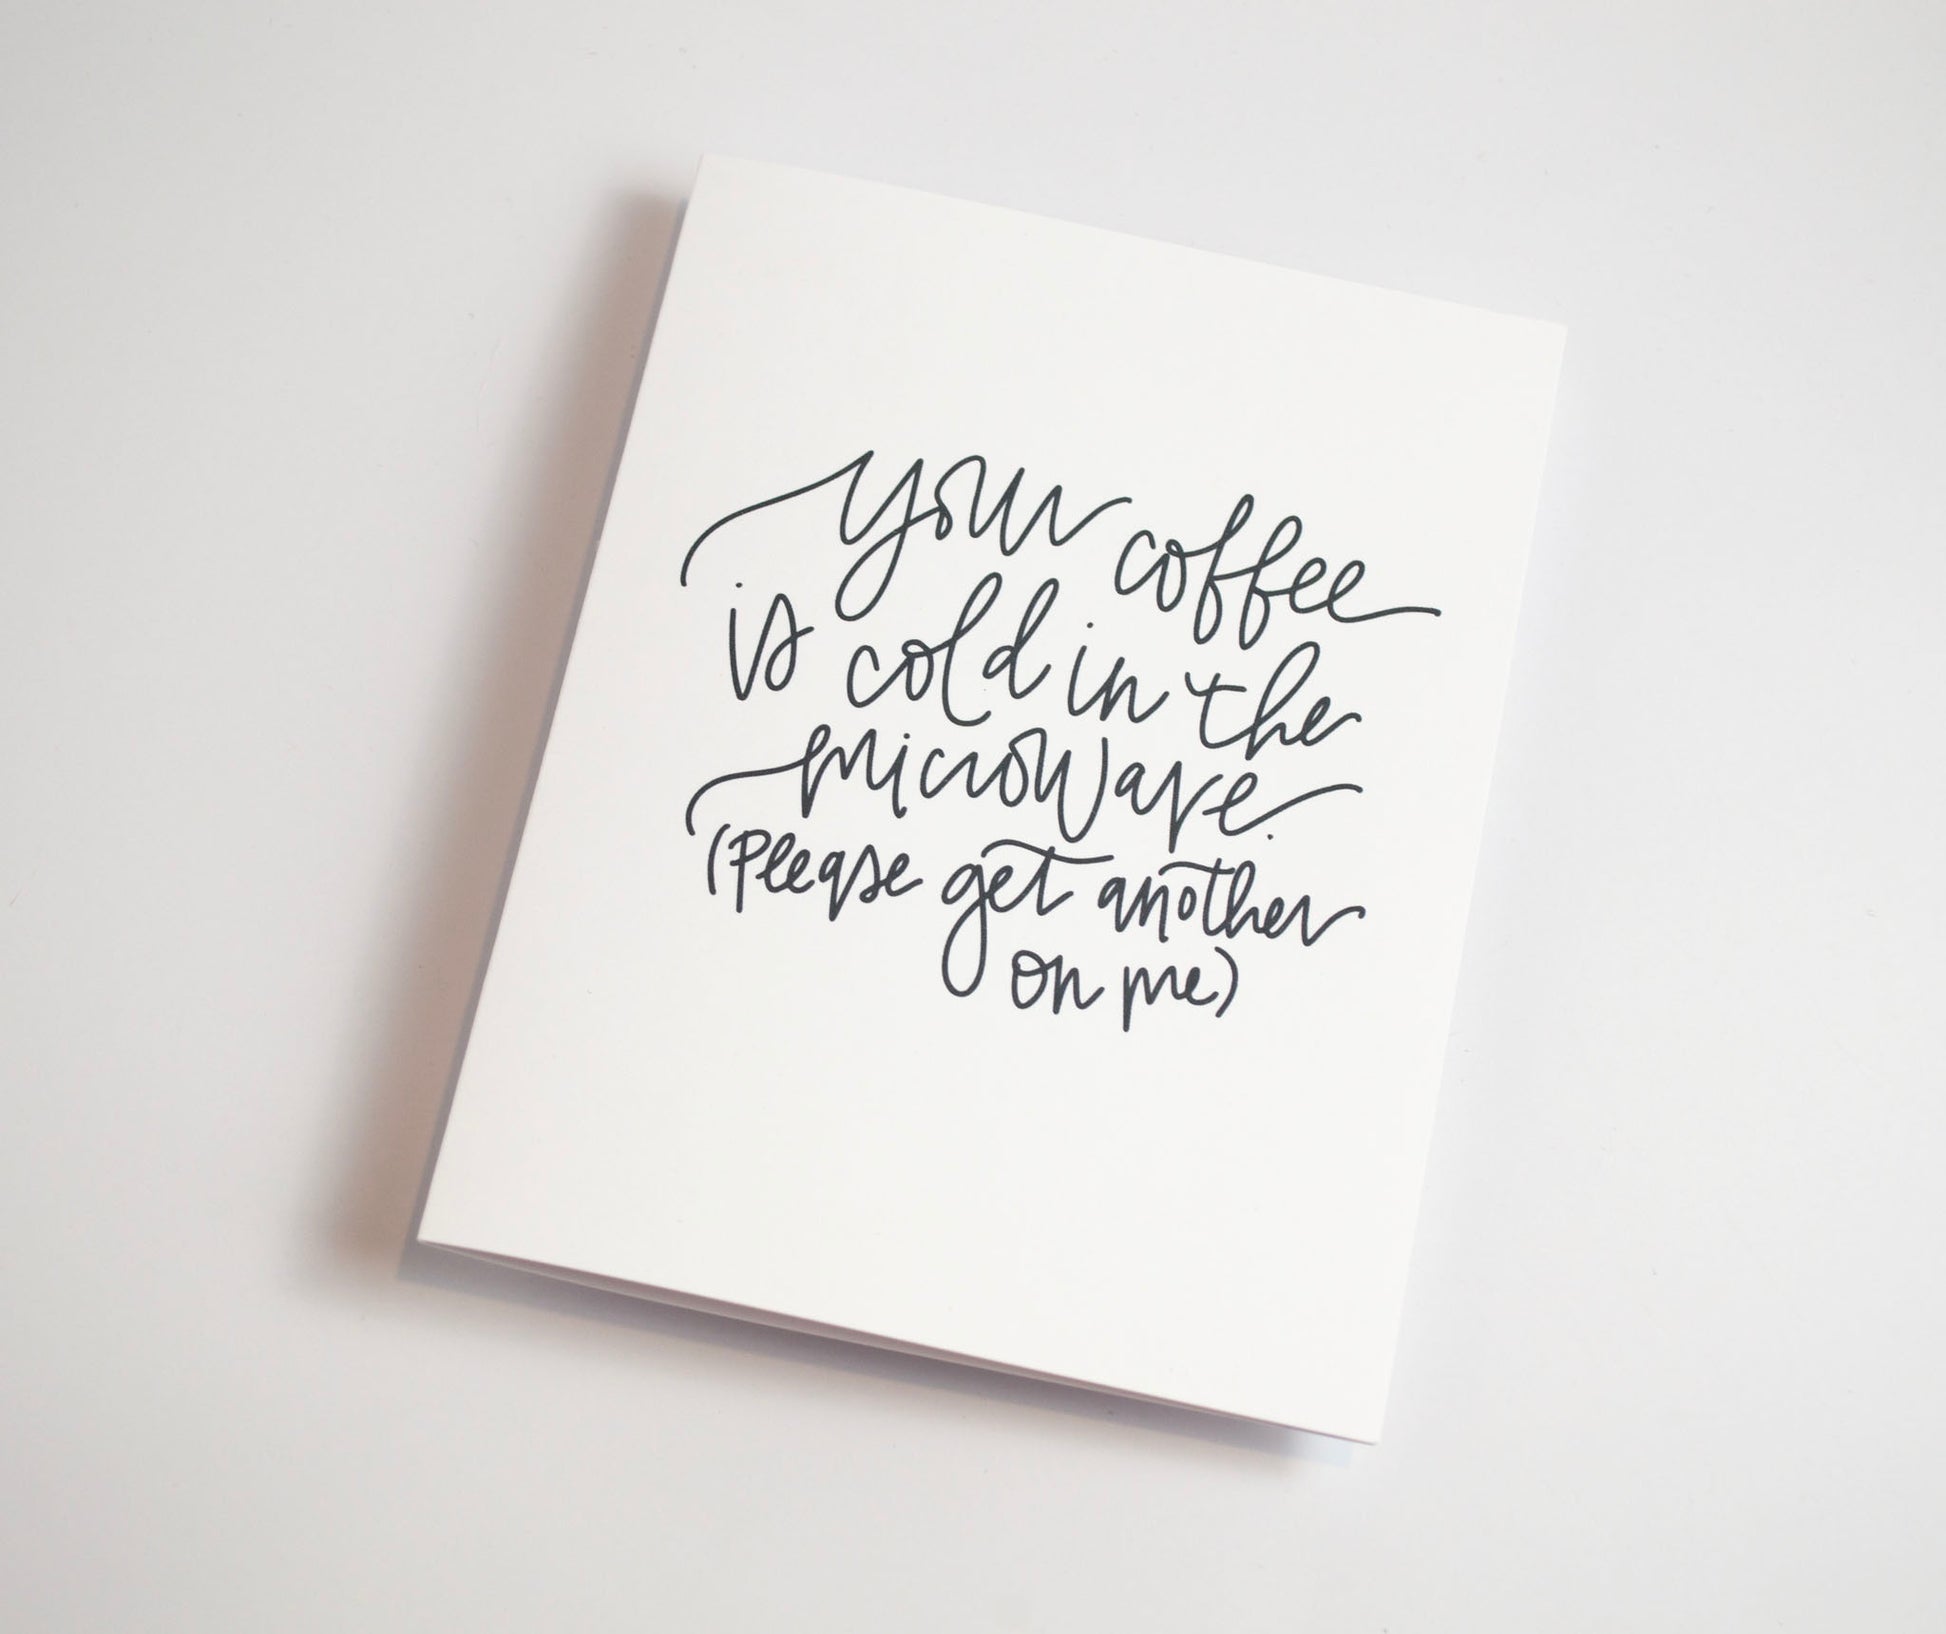 your coffee
is cold in the
microwave.
(Please get another
on me)